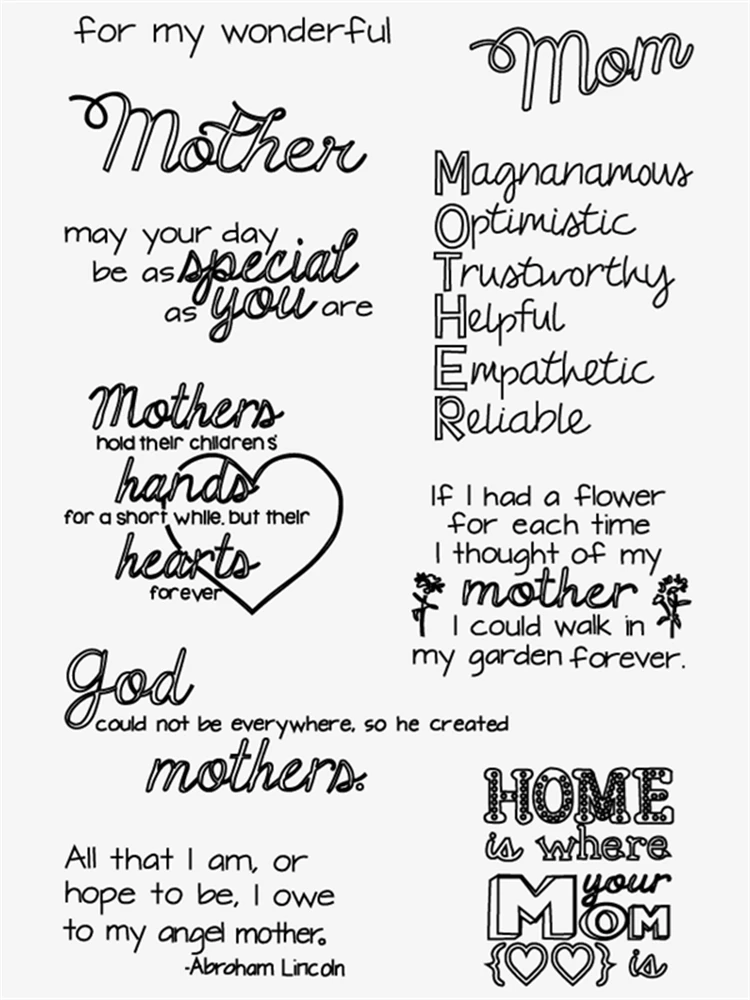 for my wonderful
Mother
may your day
be as special
as you are
Mothers
hold their childrens'
hands
for a short while, but their
hearts
forever
God
could not be everywhere, so he created
mothers.
All that I am, or
hope to be, I owe
to my angel mother.
-Abroham Lincoln
Mom
Magnanamous
Optimistic
Trustworthy
Helpful
Empathetic
Reliable
If I had a flower
for each time
I thought of my
mother
I could walk in
my garden forever.
HOME
is where
your
MOM
is